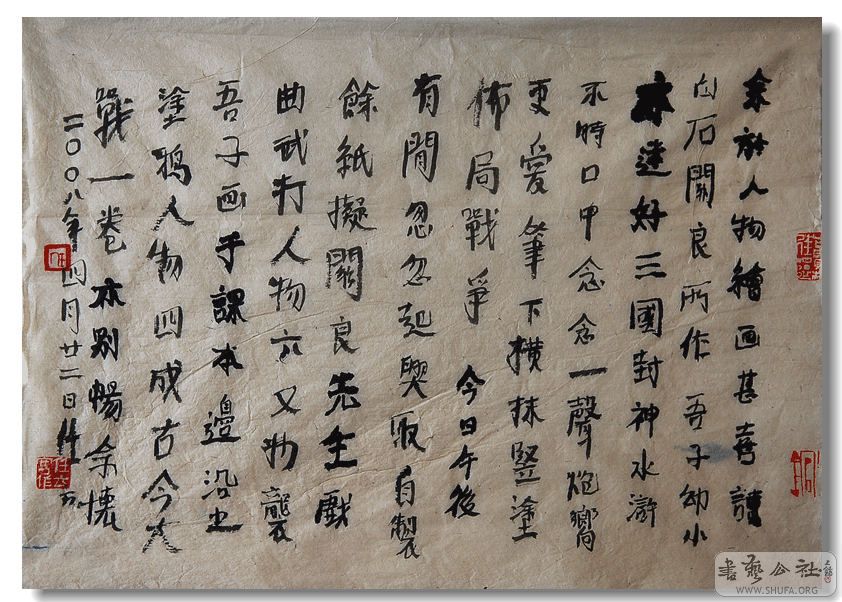 余於人物繪画甚喜讀
白石關良所作吾子幼小
亦迷好三國封神水滸
不時口中念念一聲炮響
更愛筆下橫抹竪塗
佈局戰爭今日午後
有閒忽忽起興取自製
餘紙擬關良先生戲
曲武打人物六又物襲
吾子画于課本邊沿之
塗鴉人物四成古今大
戰一卷亦別暢余懷
二〇〇八年四月廿二日
書藝公社
WWW.SHUFA.ORG